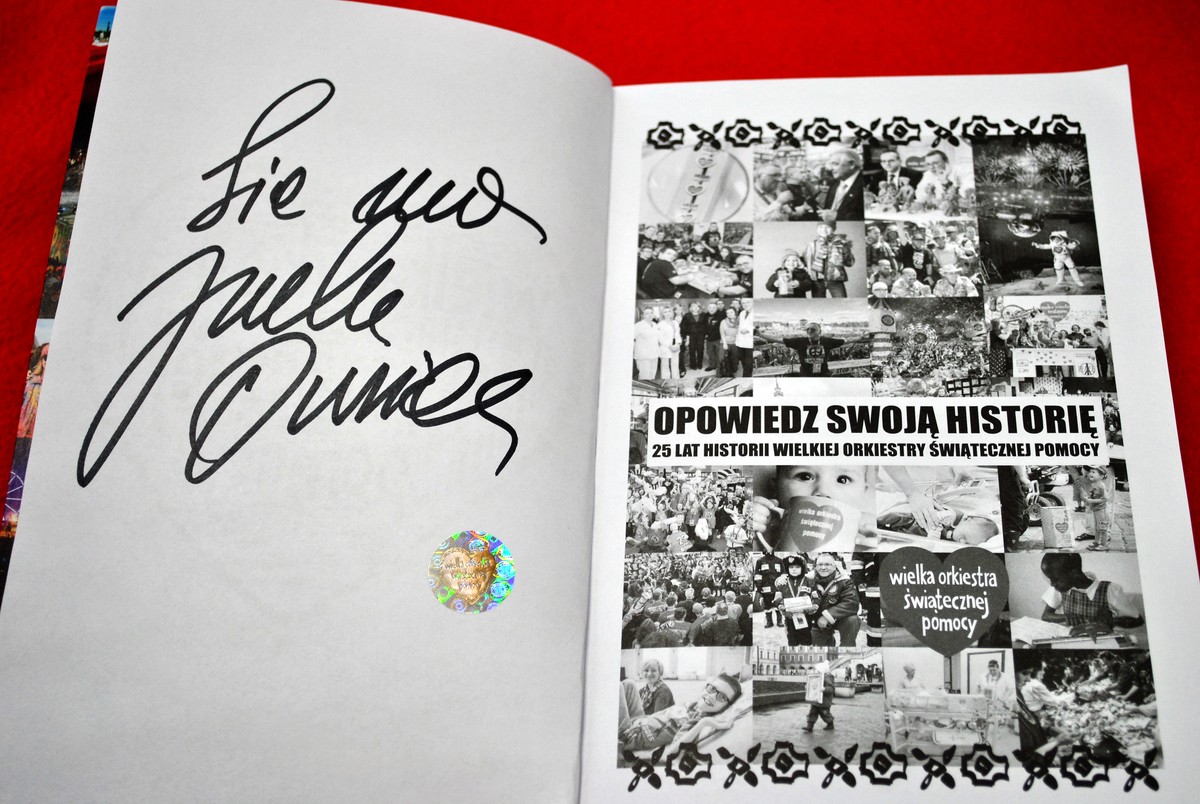 Sie ma
Jurek
Owsiak
OPOWIEDZ SWOJĄ HISTORIĘ
25 LAT HISTORII WIELKIEJ ORKIESTRY ŚWIĄTECZNEJ POMOCY
wielka orkiestra
świątecznej
pomocy
wielka orkiestra
świątecznej
pomocy